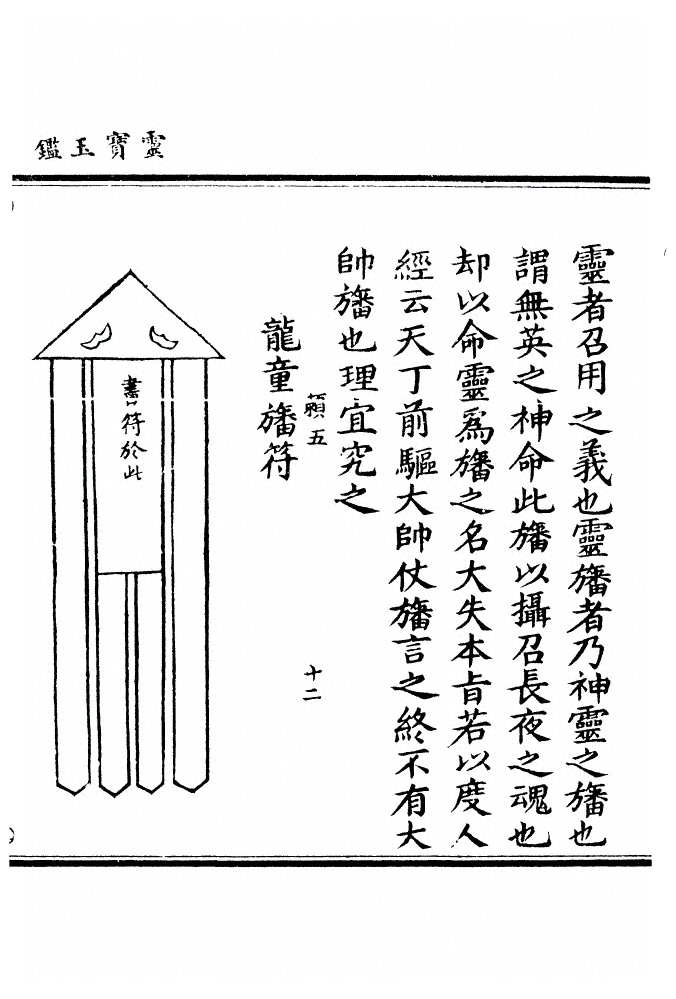 靈寶玉鑑
靈者召用之義也靈旛者乃神靈之旛也
謂無英之神命此旛以攝召長夜之魂也
却以命靈爲旛之名大失本旨若以度人
經云天丁前驅大帥仗旛言之終不有大
帥旛也理宜究之
籟五
十二
龍童旛符
書符於此